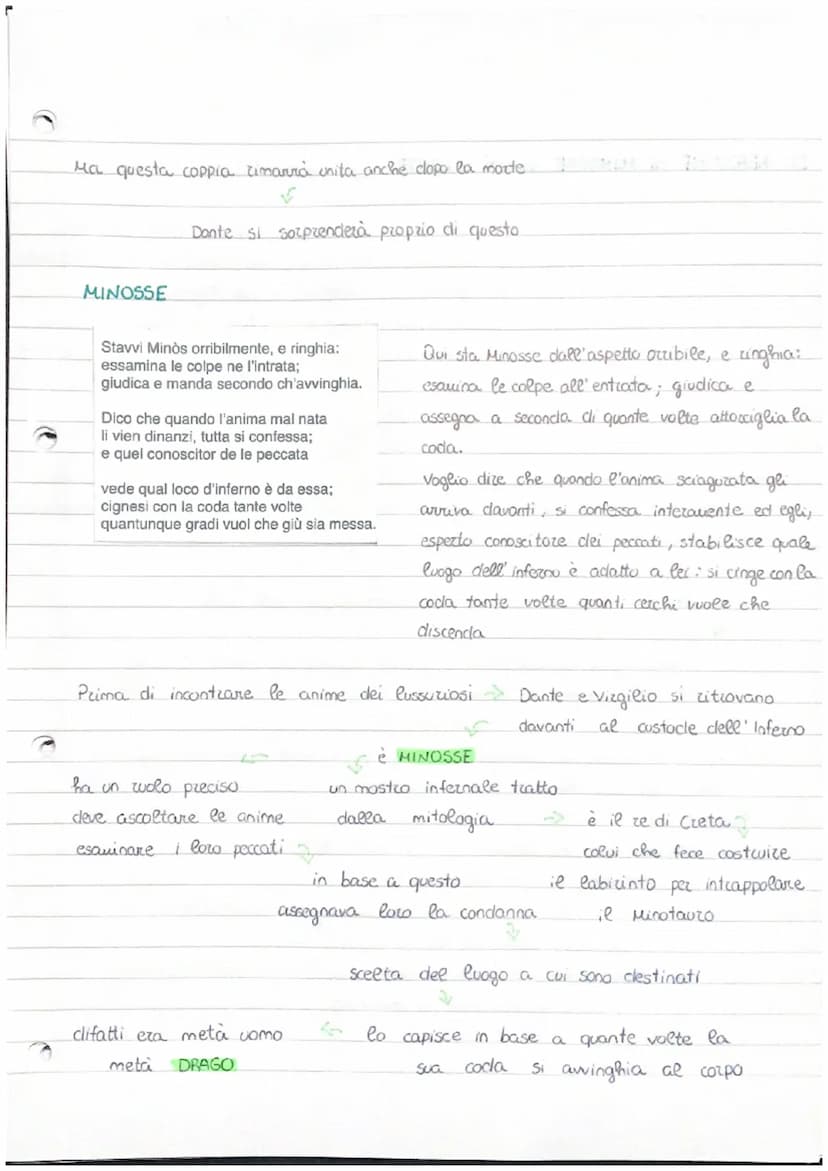 Ma questa coppia rimarrà unita anche dopo la morte
Dante si sorprenderà proprio di questo
MINOSSE
Stavvi Minòs orribilmente, e ringhia:
essamina le colpe ne l'intrata;
giudica e manda secondo ch'avvinghia.
Dico che quando l'anima mal nata
li vien dinanzi, tutta si confessa;
e quel conoscitor de le peccata
vede qual loco d'inferno è da essa;
cignesi con la coda tante volte
quantunque gradi vuol che giù sia messa.
Qui sta Minosse dall'aspetto orribile, e ringhia:
esamina le colpe all'entrata; giudica e
assegna a seconda di quante volte attorciglia la
coda.
Voglio dire che quando l'anima sciagurata gli
arriva davanti, si confessa interamente ed egli,
esperto conoscitore dei peccati, stabilisce quale
luogo dell'inferno è adatto a lei: si cinge con la
coda tante volte quanti cerchi vuole che
discenda
Prima di incontrare le anime dei lussuriosi → Dante e Virgilio si ritrovano
davanti al custode dell'Inferno
è MINOSSE
ha un ruolo preciso
deve ascoltare le anime
esaminare i loro peccati
in base a questo
assegnava loro la condanna
un mostro infernale tratto
dalla mitologia → è il re di Creta
colui che fece costruire
il labirinto per intrappolare
il Minotauro
scelta del luogo a cui sono destinati
lo capisce in base a quante volte la
sua coda si avvinghia al corpo
difatti era metà uomo
metà DRAGO